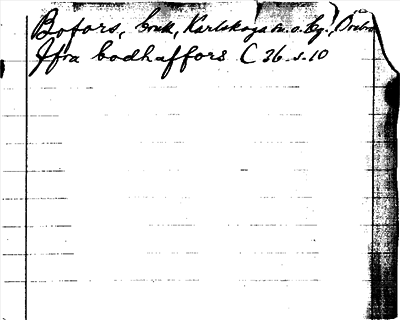 Bofors, bruk, Karlskoga sn. o. bg., Örebro
Jfra bodhaffors C 26 s. 10